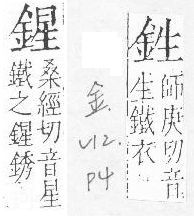 鉎
師庚切音
生鐵衣
金
V12.
P4
鍟
桑經切音星
鐵之鍟銹